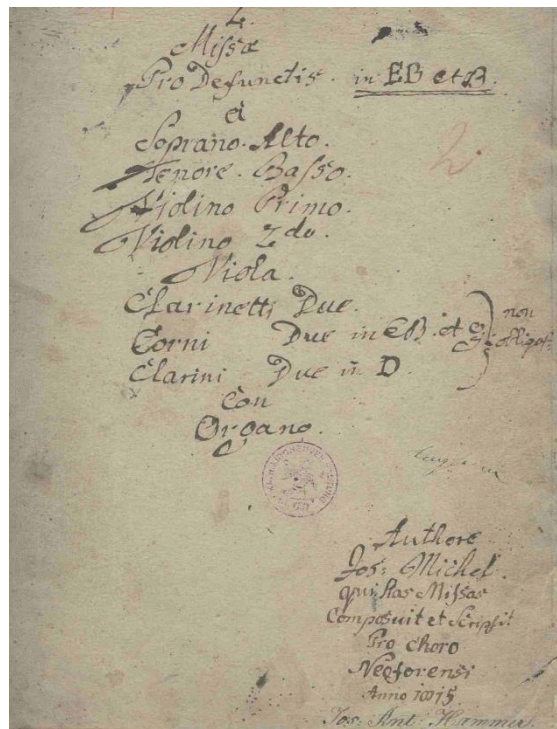 4.
Missæ
Pro Defunctis. in EB et B.
à
Soprano. Alto.
Tenore. Basso.
Violino Primo.
Violino 2do.
Viola.
Clarinetti Due.
Corni Due in EB. et G. non obligat:
Clarini Due in D.
Con
Organo.
Authore
Jos: Michel.
qui has Missas
Composuit et Scripsit
Pro Choro
Neoforensi
Anno 1815.
Jos: Ant: Hammer
2.